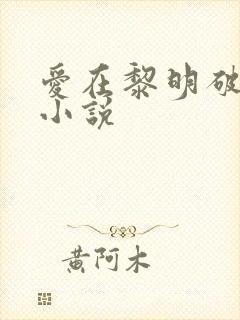 愛在黎明破
小說
黃阿木